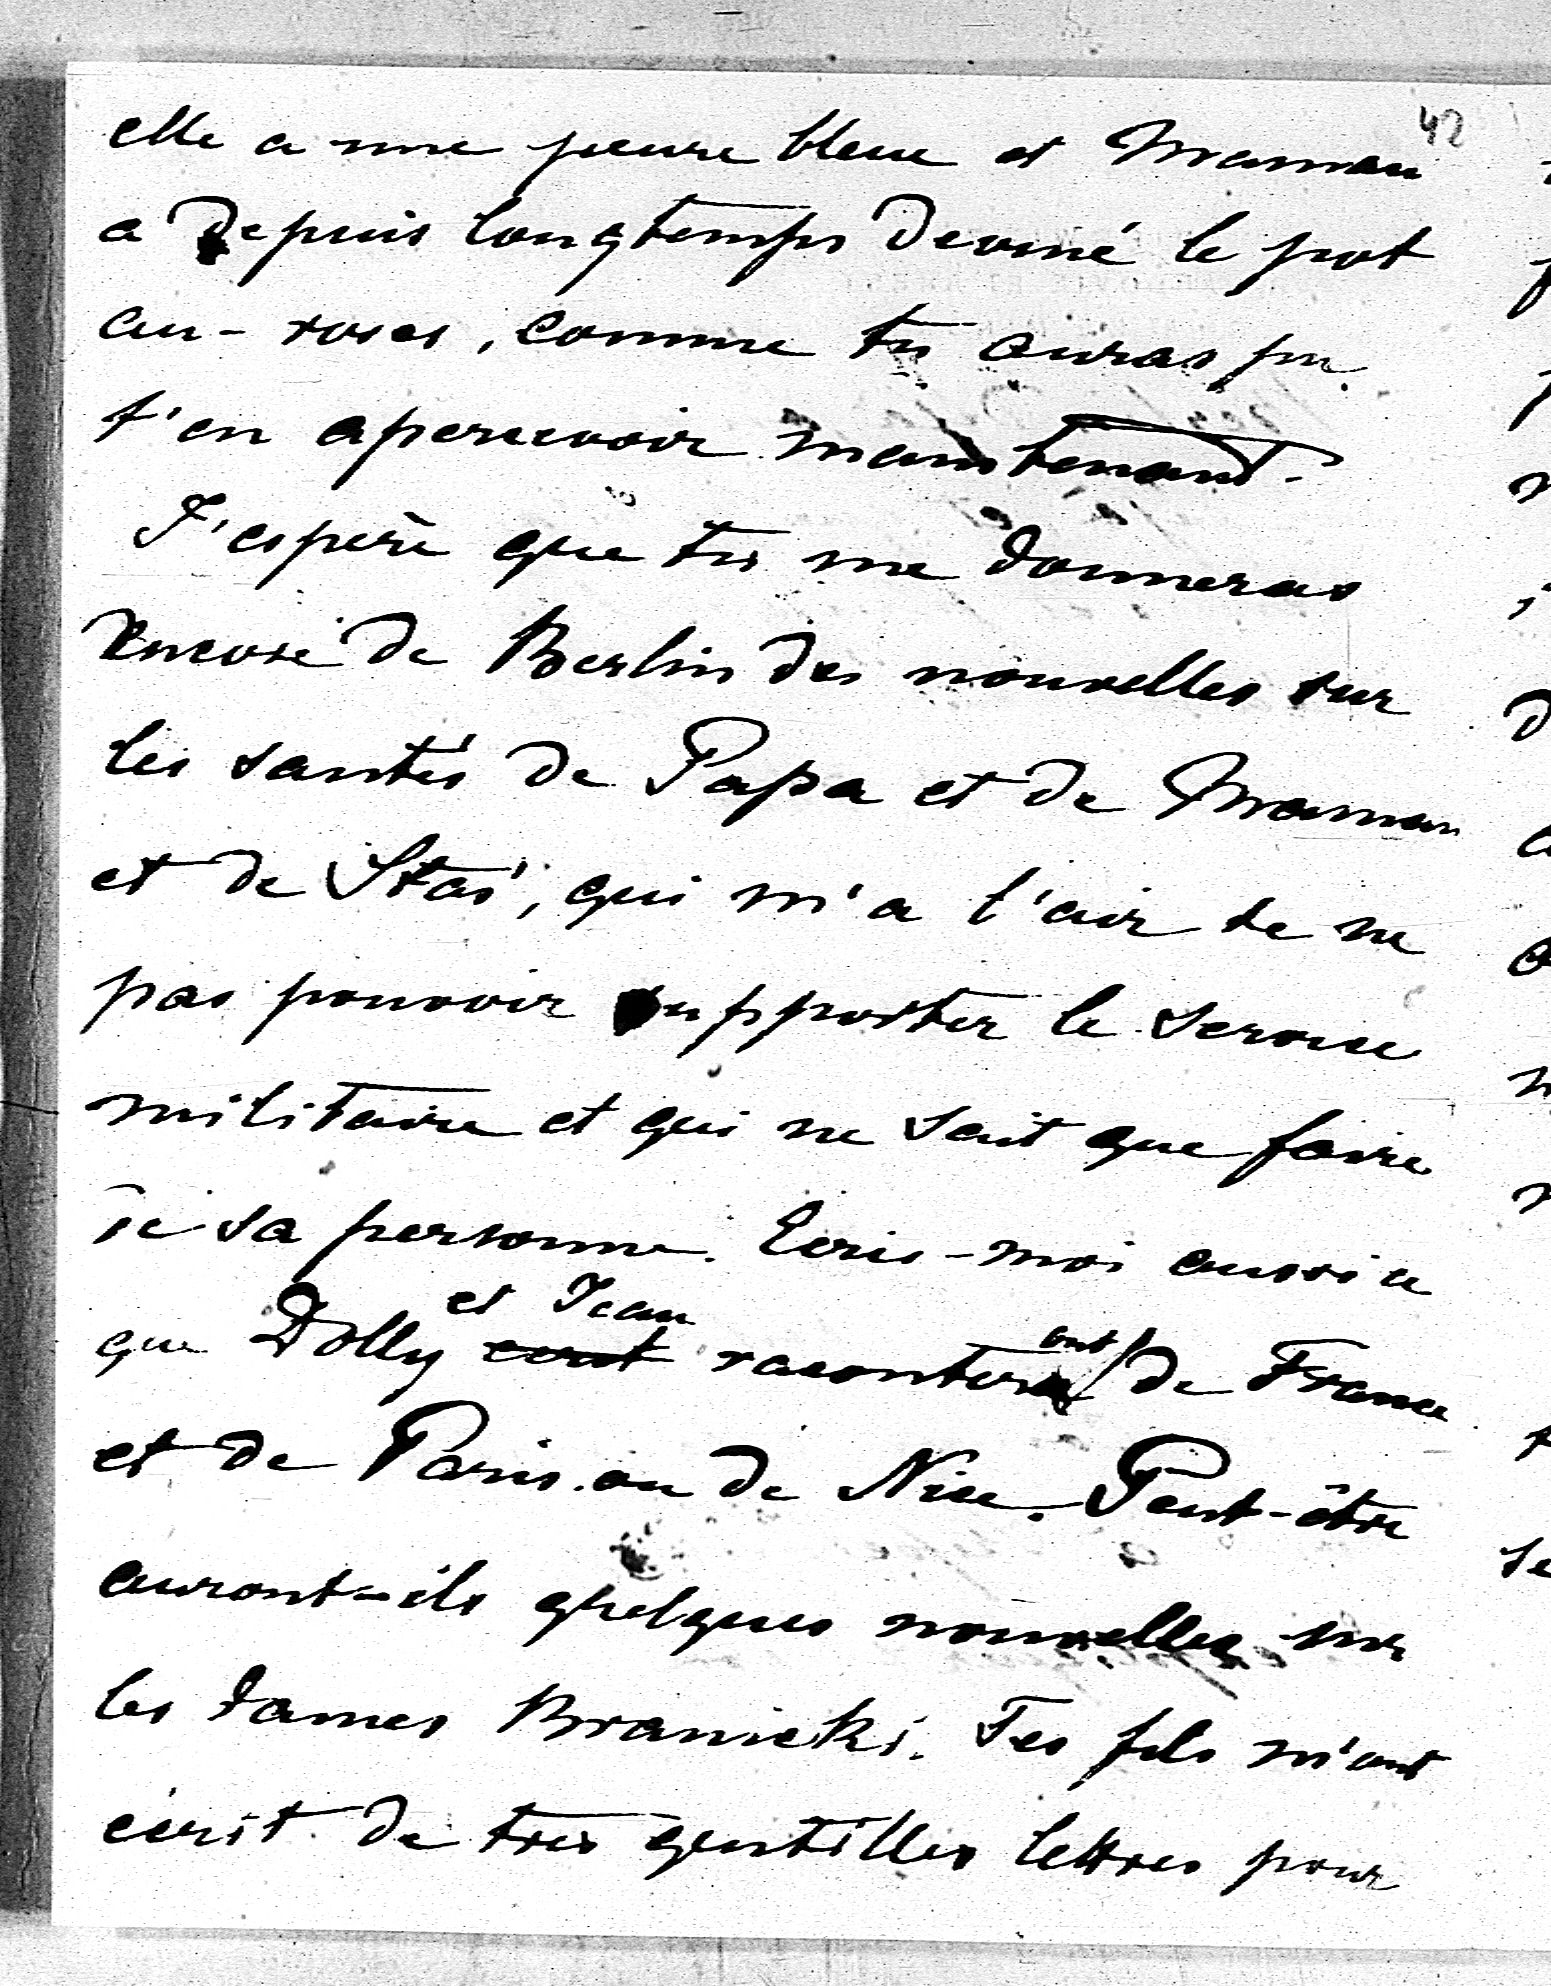 42
elle a une peure bleue et Maman
a depuis longtemps deviné le pot
au-roses, comme tu auras pu
t'en apercevoir maintenant.
J'espère que tu me donneras
encore de Berlin des nouvelles sur
les santés de Papa et de Maman
et de Staś, qui m'a l'air de ne
pas pouvoir supporter le service
militaire et qui ne sait que faire
de sa personne. Ecris-moi aussi ce
et Jean
que Dolly raconteront de France
et de Paris ou de Nice. Peut-être
auront-ils quelques nouvelles sur
les dames Branicki. Tes fils m'ont
écrit de très gentilles lettres pour